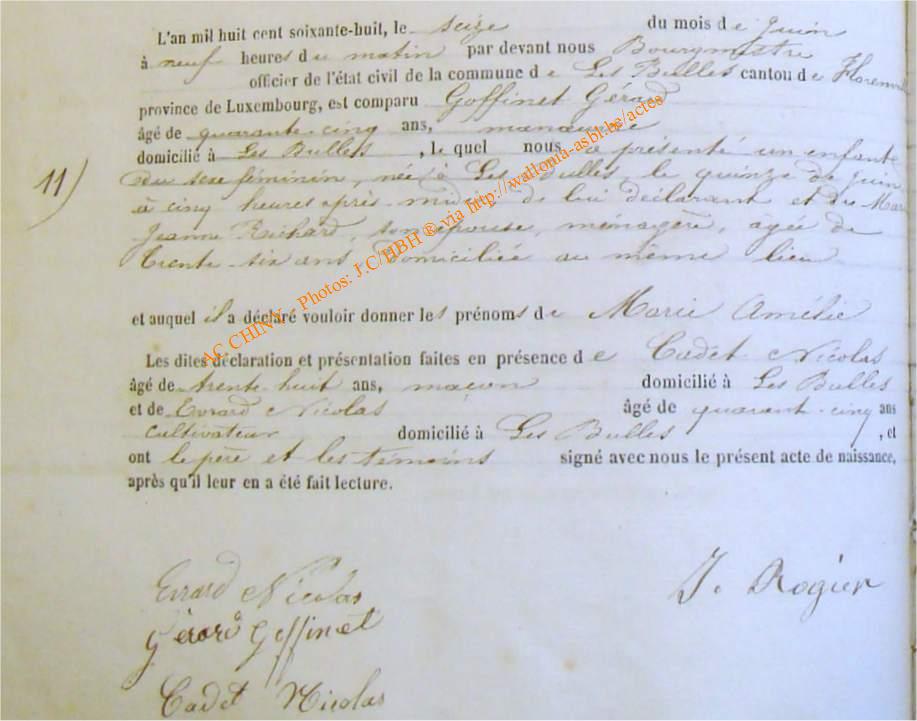 L'an mil huit cent soixante-huit, le seize du mois de Juin
à neuf heures du matin par devant nous Bourgmestre
officier de l'état civil de la commune de Les Bulles canton de Florenville
province de Luxembourg, est comparu Goffinet Gérard
âgé de quarante-cinq ans, manœuvre
domicilié à Les Bulles, le quel nous a présenté un enfant
du sexe féminin, née à Les Bulles, le quinze de Juin
11)
à cinq heures après-midi de lui déclarant et de Marie
Jeanne Richard, son épouse, ménagère, âgée de
trente-six ans, domiciliée au même lieu
et auquel il a déclaré vouloir donner les prénoms de Marie Amélie
Les dites déclaration et présentation faites en présence de Cadet Nicolas
âgé de trente-huit ans, maçon domicilié à Les Bulles
et de Evrard Nicolas âgé de quarant-cinq ans
cultivateur domicilié à Les Bulles, et
ont le père et les témoins signé avec nous le présent acte de naissance,
après qu'il leur en a été fait lecture.
Evrard Nicolas
J. Rogier
Gérard Goffinet
Cadet Nicolas
AC CHINY - Photos: J.C/HBH ® via http://wallonia-asbl.be/actes